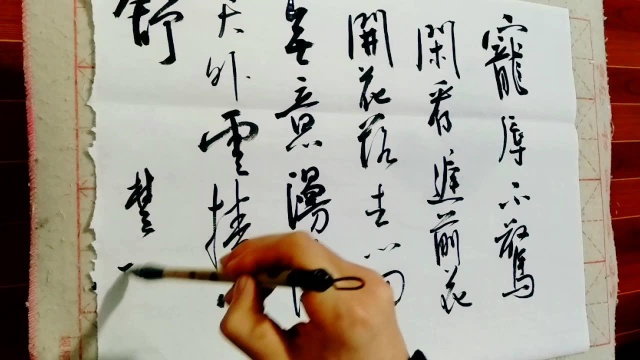 寵辱不驚
閑看庭前花
開花落去留
無意漫
天外雲捲
舒
楚